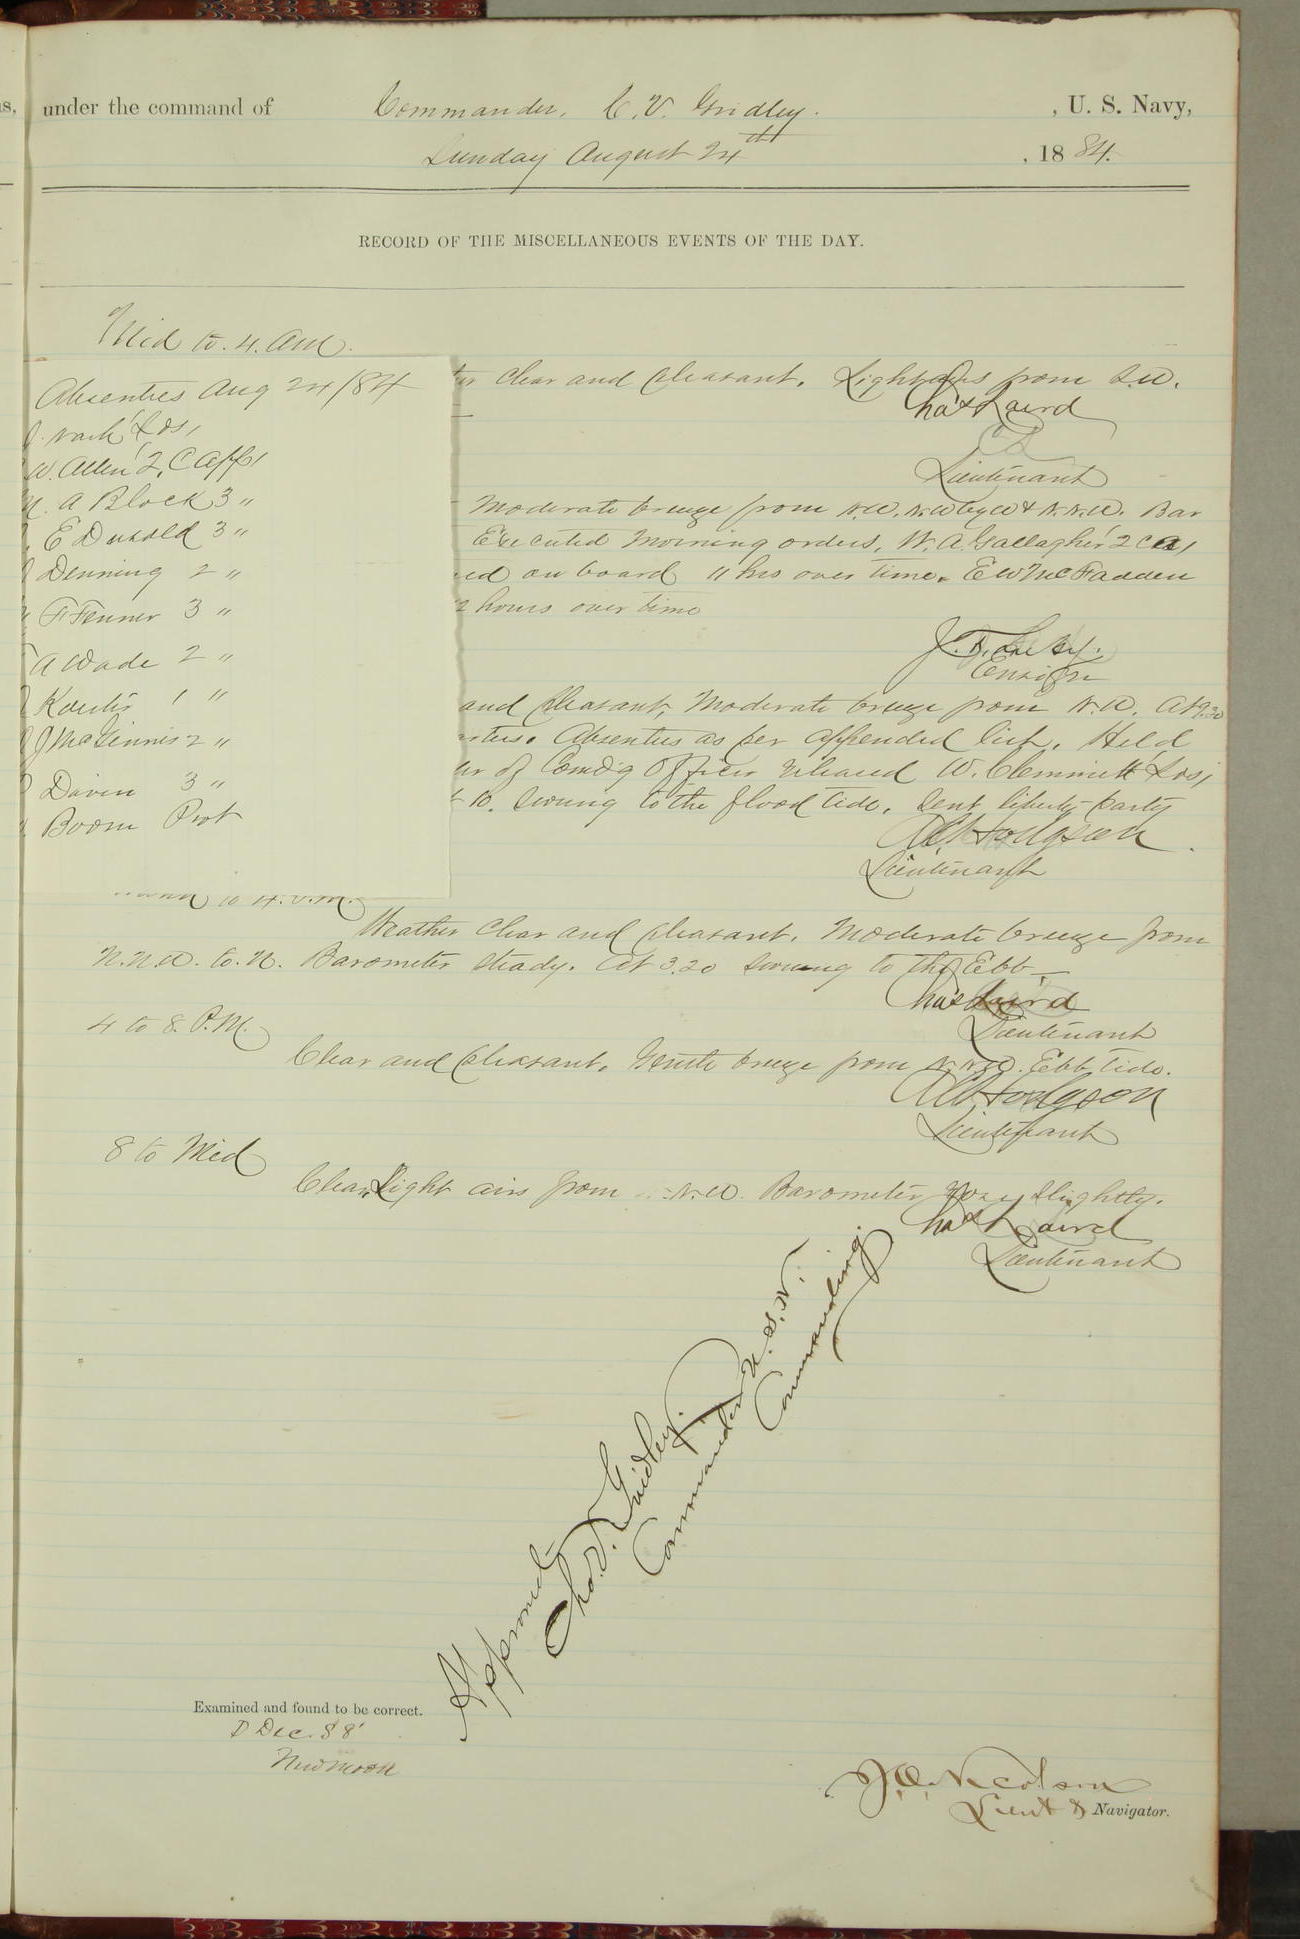 under the command of Commander, C. V. Gridley. , U. S. Navy,
Sunday August 24th , 1884.
RECORD OF THE MISCELLANEOUS EVENTS OF THE DAY.
Mid to. 4. AM.
Clear and pleasant. Light airs from S.W.
Chas Laird
Lieutenant
Absentees Aug 24/84
W. Allen 2, C Aff,
A Block 3 "
3 "
Denning 2 "
F Fenner 3 "
A Wade 2 "
1 "
J McGinnis 2 "
Daven 3 "
Boom
Moderate breeze from N.W. N.W by W & N.N.W. Bar
Executed Morning orders. W. A. Gallagher 2 C
on board 11 hrs over time. E W McFadden
hours over time
Ensign
and pleasant, Moderate breeze from N.W. At 9.30
Absentees as per appended list. Held
of Comd'g Officer released W. Clemmett Lds,
10. Swung to the flood tide. Sent liberty party
Hodgson
Lieutenant
to 4. P.M.
Weather Clear and pleasant. Moderate breeze from
N.N.W. to. N. Barometer steady. At 3.20 swung to the Ebb
Chas Laird
Lieutenant
4 to 8. P.M.
Clear and pleasant. Gentle breeze from N.N.W. Ebb tide.
Hodgson
Lieutenant
8 to Mid
Clear, Light airs from N.W. Barometer rose slightly.
Chas Laird
Lieutenant
Approved
Chas. V. Gridley.
Commander U.S.N.
Commanding.
Examined and found to be correct.
D Dec. 88'
New moon
Nicolson
Lieut & Navigator.